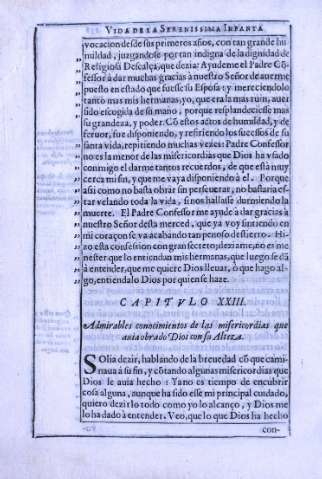 VIDA DE LA SERENISSIMA INFANTA
vocacion desde sus primeros años, con tan grande hu
mildad, juzgandose por tan indigna de la dignidad de
Religiosa Descalça, que dezia: Ayudeme el Padre Cõ
fessor à dar muchas gracias à nuestro Señor de auerme
puesto en estado que fuesse su Esposa: y mereciendolo
tanto mas mis hermanas, yo, que era la mas ruin, auer
sido escogida de su mano, porque resplandeciesse mas
su grandeza, y poder. Cõ estos actos de humildad, y de
feruor, fue disponiendo, y refiriendo los sucessos de su
santa vida, repitiendo muchas vezes: Padre Confessor
no es la menor de las misericordias que Dios ha vsado
conmigo el darme tantos recuerdos, de que està muy
cerca mi fin, y que me vaya disponiendo à el. Porque
assi como no basta obrar sin perseuerar, no bastaria es
tar velando toda la vida, si nos hallasse durmiendo la
muerte. El Padre Confessor me ayude à dar gracias à
nuestro Señor desta merced, que ya voy sintiendo en
mi coraçon se và acabando tan penoso destierro. Hi-
zo esta confession con gran secreto; deziame, no es me
nester que lo entiendan mis hermanas, que luego se dà
à entender, que me quiere Dios lleuar, ò que hago al-
go, entiendalo Dios por quien se haze.
CAPITVLO XXIII.
Admirables conocimientos de las misericordias que
auia obrado Dios con su Alteza.
Solia dezir, hablando de la breuedad cõ que cami-
naua à su fin, y cõtando algunas misericordias que
Dios le auia hecho: Ya no es tiempo de encubrir
cosa alguna, aunque ha sido esse mi principal cuidado,
quiero dezirlo todo como yo lo alcanço, y Dios me
lo ha dado à entender. Veo, que lo que Dios ha hecho
con-